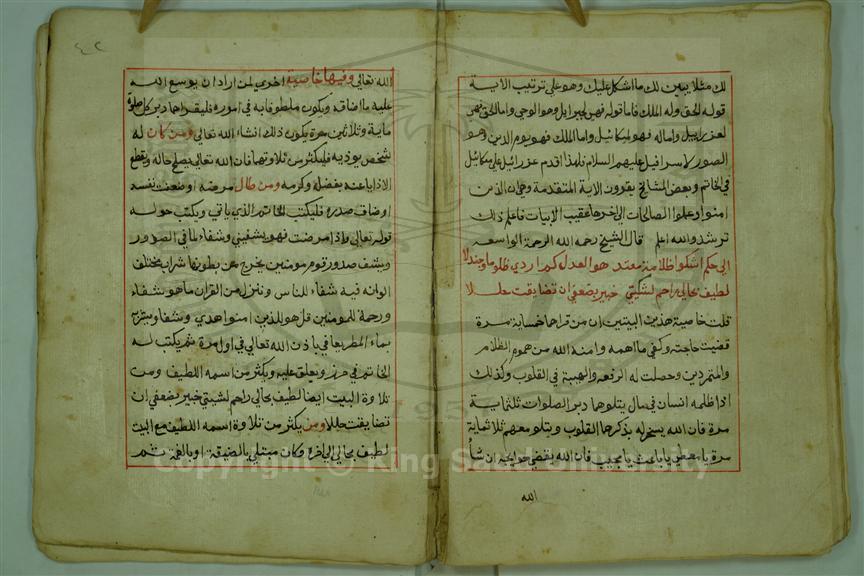 لك مثلا يبين لك ما اشكل عليك وهو على ترتيب الاية
قوله الحق وله الملك فاما قوله فهو لجبرايل وهو الوحي واما الحق فهو
لعزرايل واما له فهو لميكائيل واما الملك فهو يوم الدين وهو
الصور لاسرافيل عليهم السلام فلهذا اقدم عزرائيل على ميكائيل
في الخاتم وبعض المشايخ يقرون الاية المتقدمة وهي ان الذين
امنوا وعملوا الصالحات الى اخرها عقيب الابيات فاعلم ذلك
ترشد والله اعلم قال الشيخ رحمه الله الرحمة الواسعه
الى حكم اشكوا ظلامة معتد هو العدل كم اردى ظلوما وجندلا
لطيف بحالي راحم لشكيتي خبير بضعفي ان تضايقت حللا
قلت خاصية هذين البيتين ان من قراهما خمسماية مرة
قضيت حاجته وكفي ما اهمه وامنه الله من هموم الظلام
والمتمردين وحصلت له الرفعه والهيبة في القلوب وكذلك
اذا ظلمه انسان في مال يتلوها دبر الصلوات ثلثماية
مرة فان الله يسخر له بذكرها القلوب ويتلو معهم ثلاثماية
مرة يا معطي يا باعث يا مجيب فان الله يقضي حوايجه ان شأ
الله
٤٢
الله تعالى وفيها خاصية اخرى لمن اراد ان يوسع الله
عليه ما اضاقه ويكون ملطوفا به في اموره فليقراها دبر كل صلوة
ماية وثلاثين مرة يكون ذلك انشاء الله تعالى ومن كان له
شخص يوذيه فليكثر من تلاوتهما فان الله تعالى يصلح حاله ويقطع
الاذايا عنه بفضله وكرمه ومن طال مرضه او ضعفت نفسه
او ضاق صدره فليكتب الخاتم الذي ياتي ويكتب حوله
قوله تعالى واذا مرضت فهو يشفيني وشفاء لما في الصدور
ويشف صدور قوم مومنين يخرج من بطونها شراب مختلف
الوانه فيه شفاء للناس وننزل من القران ما هو شفاء
ورحمة للمومنين قل هو للذين امنوا هدى وشفاء ويشربه
بماء المطر يعافى باذن الله تعالى في اول مرة ثم يكتب له
الخاتم في حرز ويعلق عليه ويكثر من اسمه اللطيف ومن
تلاوة البيت ايضا لطيف بحالي راحم لشكيتي خبير بضعفي ان
تضايقت حللا ومن يكثر من تلاوة اسمه اللطيف مع البيت
لطيف بحالي الى اخره وكان مبتلى بالضيقة او بالغمة ثم
Copyright © King Saud University
1957